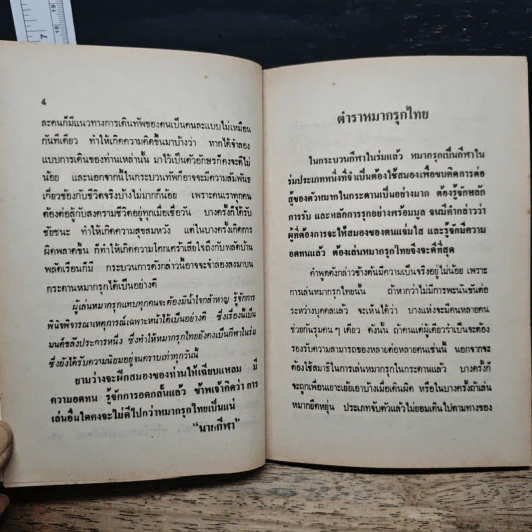 4
ละคนก็มีแนวทางการเดินทัพของคนเป็นคนละแบบไม่เหมือน
กันทีเดียว ทำให้เกิดความคิดขึ้นมาบ้างว่า หากได้จำลอง
แบบการเดินของท่านเหล่านั้น มาไว้เป็นตัวอักษรก็คงจะดีไม่
น้อย และนอกจากนี้ในกระบวนทัพก็อาจจะมีความสัมพันธ
เกี่ยวข้องกับชีวิตจริงบ้างไม่มากก็น้อย เพราะคนเราทุกคน
ต้องต่อสู้กับสงครามชีวิตอยู่ทุกเมื่อเชื่อวัน บางครั้งก็ได้รับ
ชัยชนะ ทำให้เกิดความสุขสมหวัง แต่ในบางครั้งเกิดการ
ผิดพลาดขึ้น ก็ทำให้เกิดความโศกเศร้าเสียใจถึงกับพลัดบ้าน
พลัดเรือนก็มี กระบวนการดังกล่าวนี้อาจจะจำลองลงมาบน
กระดานหมากรุกได้เป็นอย่างดี
ผู้เล่นหมากรุกแทบทุกคนจะต้องมีน้ำใจกล้าหาญ รู้จักการ
พินิจพิจารณาเหตุการณ์เฉพาะหน้าได้เป็นอย่างดี ซึ่งเรื่องนี้เป็น
มนต์ขลังประการหนึ่ง ซึ่งทำให้หมากรุกไทยยังคงเป็นกีฬาในร่ม
ซึ่งยังได้รับความนิยมอยู่จนตราบเท่าทุกวันนี้
ยามว่างจะฝึกสมองของท่านให้เฉียบแหลม มี
ความอดทน รู้จักการอดกลั้นแล้ว ข้าพเจ้าคิดว่า การ
เล่นอื่นใดคงจะไม่ดีไปกว่าหมากรุกไทยเป็นแน่
“นายกีฬา”
ตำราหมากรุกไทย
ในกระบวนกีฬาในร่มแล้ว หมากรุกเป็นกีฬาใน
ร่มประเภทหนึ่งที่จำเป็นต้องใช้สมองเพื่อขบคิดการต่อ
สู้ของตัวหมากในกระดานเป็นอย่างมาก ต้องรู้จักหลัก
การรับ และหลักการรุกอย่างพร้อมมูล จนมีคำกล่าวว่า
ผู้ที่ต้องการจะให้สมองของตนแจ่มใส และรู้จักมีความ
อดทนแล้ว ต้องเล่นหมากรุกไทยจึงจะดีที่สุด
คำพูดดังกล่าวข้างต้นมีความเป็นจริงอยู่ไม่น้อย เพราะ
การเล่นหมากรุกไทยนั้น ถ้าหากว่าไม่มีการพะนันขันต่อ
ระหว่างบุคคลแล้ว จะเห็นได้ว่า บางแห่งจะมีคนหลายคน
ช่วยกันรุมคน ๆ เดียว ดังนั้น ถ้าคนแต่ผู้เดียวร่ำเป็นจะต้อง
รองรับความสามารถของหลายต่อหลายคนเช่นนี้ นอกจากจะ
ต้องใช้สมาธิในการเล่นหมากรุกไทยในกระดานแล้ว บางครั้งก็
จะถูกเพื่อนแยะเย้ยเอาบ้างเมื่อเดินผิด หรือในบางครั้งถ้าเล่น
หมากยึดหยุ่น ประเภทจับตัวแล้วไม่ยอมเดินไปตามทางของ